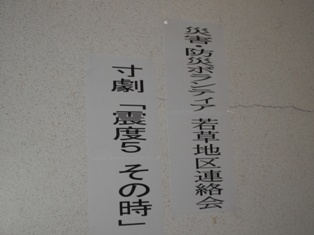 災害・防災ボランティア 若草地区連絡会
寸劇 「震度5 その時」